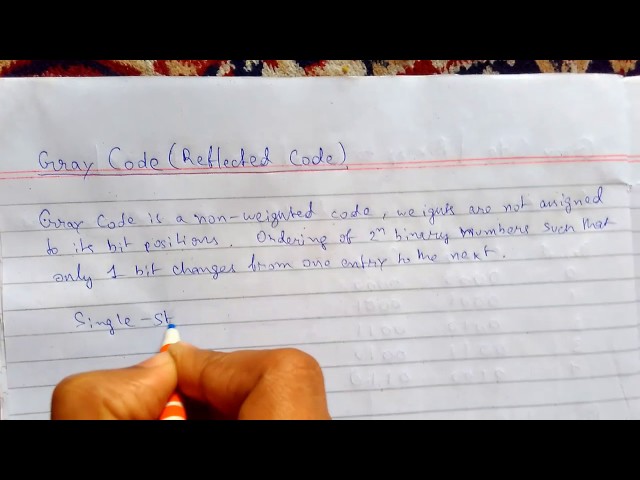 Gray Code (Reflected Code)
Gray Code is a non-weighted code, weights are not assigned
to its bit positions. Ordering of 2ⁿ binary numbers such that
only 1 bit changes from one entry to the next.
Single-st